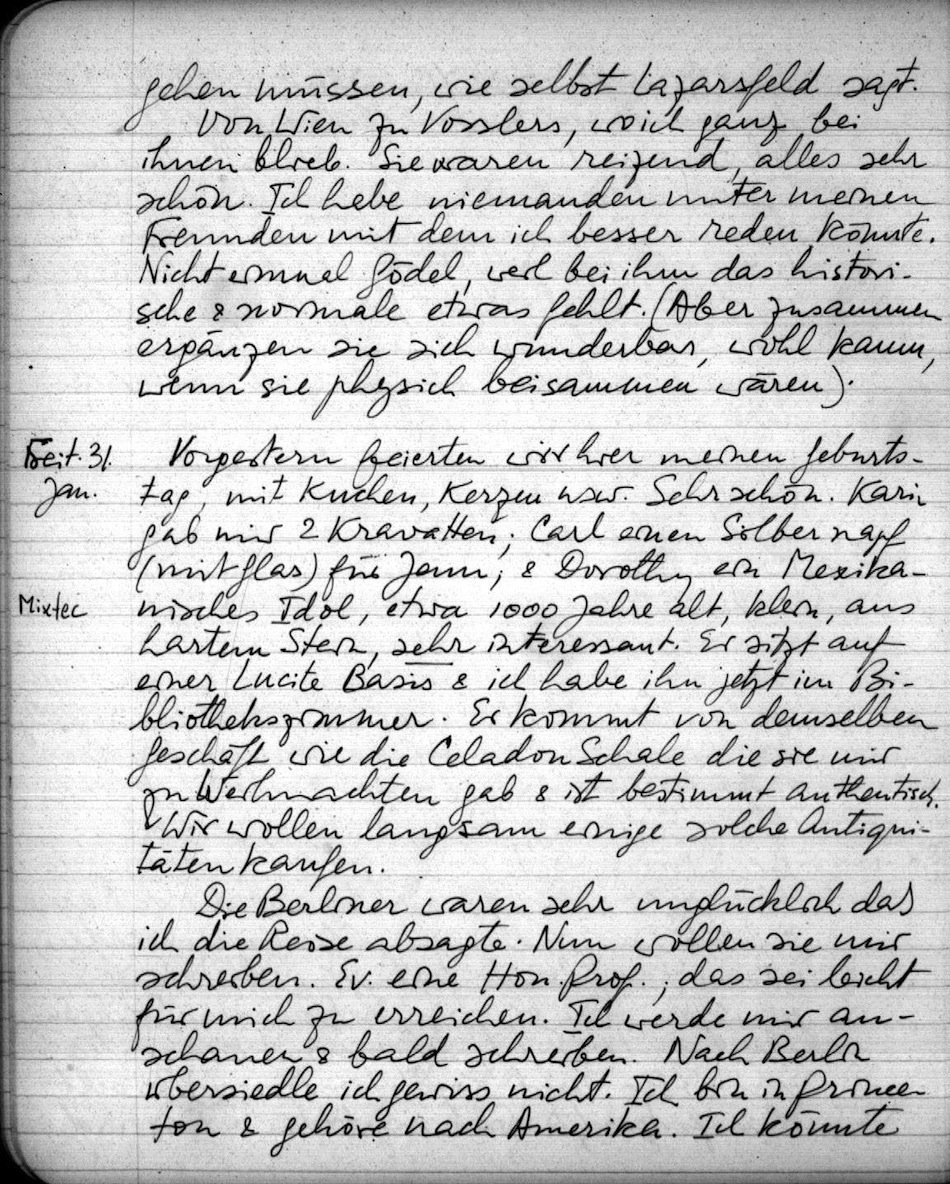 gehen müssen, wie selbst Lazarsfeld sagt.
Von Wien zu Vosslers, wo ich ganz bei
ihnen blieb. Sie waren reizend, alles sehr
schön. Ich habe niemanden unter meinen
Freunden mit dem ich besser reden könnte.
Nicht einmal Gödel, weil bei ihm das histori-
sche & normale etwas fehlt. (Aber zusammen
ergänzen sie sich wunderbar, wohl kaum,
wenn sie physisch beisammen wären).
Freit. 31. Vorgestern feierten wir hier meinen Geburts-
Jan. tag, mit Kuchen, Kerzen usw. Sehr schön. Karin
gab mir 2 Kravatten; Carl einen Silbernapf
(mit Glas) für Jam; & Dorothy ein Mexika-
Mixtec nisches Idol, etwa 1000 Jahre alt, klein, aus
hartem Stein, sehr interessant. Er sitzt auf
einer Lucite Basis & ich habe ihn jetzt im Bi-
bliothekszimmer. Er kommt von demselben
Geschäft wie die Celadon Schale die sie mir
zu Weihnachten gab & ist bestimmt authentisch.
Wir wollen langsam einige solche Antiqui-
täten kaufen.
Die Berliner waren sehr unglücklich das
ich die Reise absagte. Nun wollen sie mir
schreiben. Ev. eine Hon. Prof.; das sei leicht
für mich zu erreichen. Ich werde mir an-
schauen & bald schreiben. Nach Berlin
übersiedle ich gewiss nicht. Ich bin in Prince-
ton & gehöre nach Amerika. Ich könnte